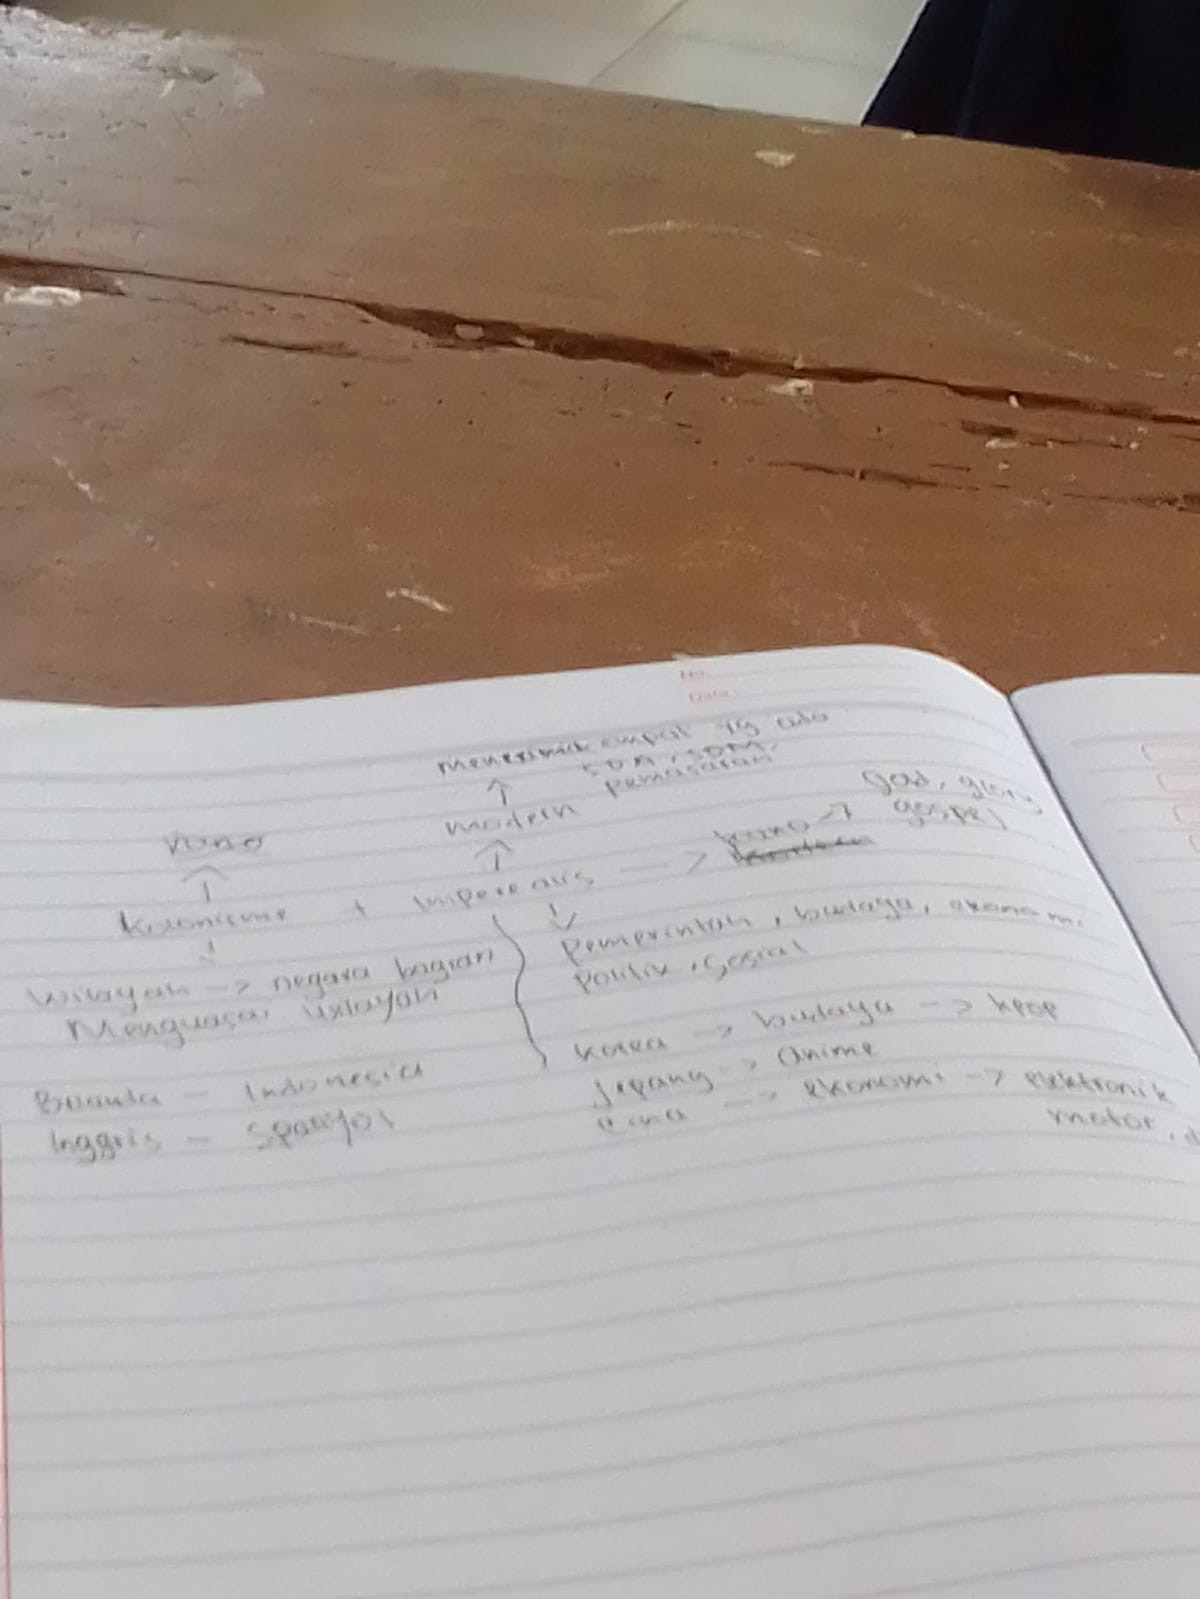 No:
Date:
yg ada
SDA, SDM,
Pemasaran
Modern
God, glory
gospel
Kuno
kuno ->
+ Imperealis ->
Pemerintah, budaya, ekonomi
Politik, sosial
Wilayah -> negara bagian
Menguasai wilayah
Korea -> budaya -> kpop
Jepang -> anime
cina -> ekonomi -> elektronik
motor, d
Blanda - Indonesia
Inggris - Spanyol